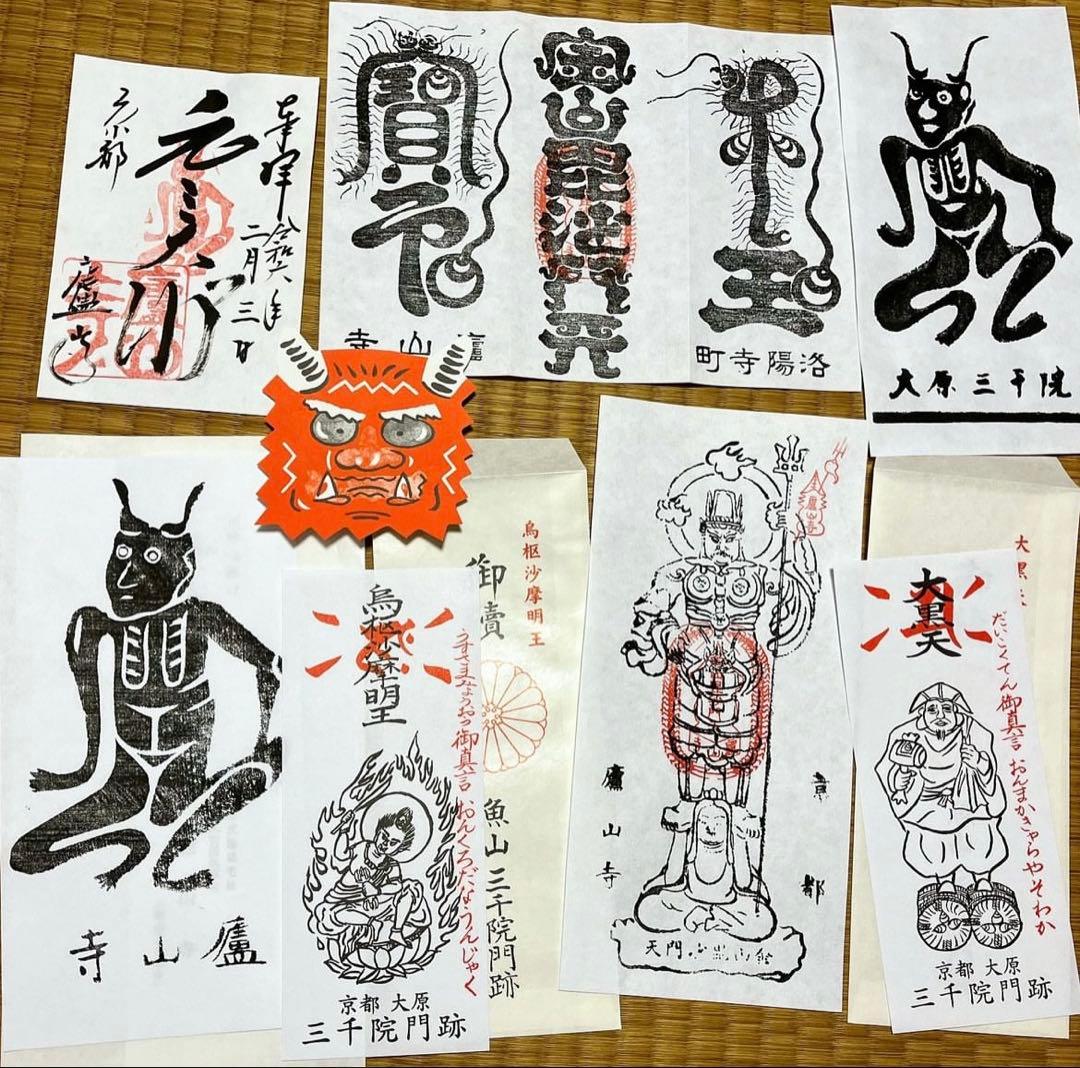 奉拝
令和六年
二月三日
元三大師
京都
廬山寺
寶
毘沙門天
王
廬山寺
洛陽寺町
大原三千院
廬山寺
烏枢沙摩明王
うすさまみょうおう御真言 おんくろだなうんじゃく
京都 大原
三千院門跡
烏枢沙摩明王
御
魚山 三千院門跡
京都
廬山寺
大黒天
大黒天
だいこくてん御真言 おんまかきゃらやそわか
京都 大原
三千院門跡